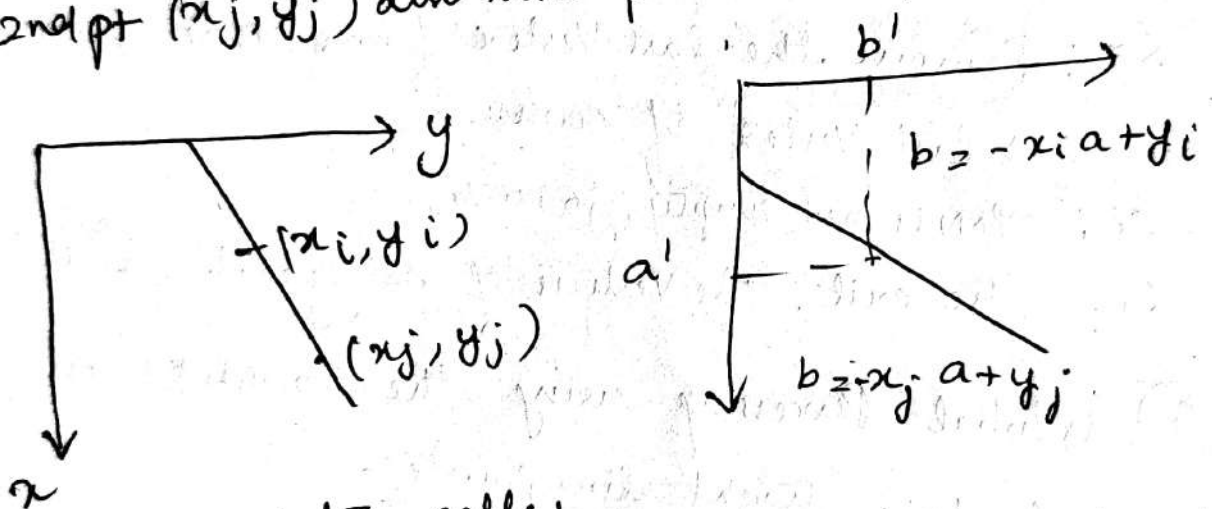 2nd pt (xj, yj)
y
(xi, yi)
(xj, yj)
x
b'
b = -xi a + yi
a'
b = -xj a + yj